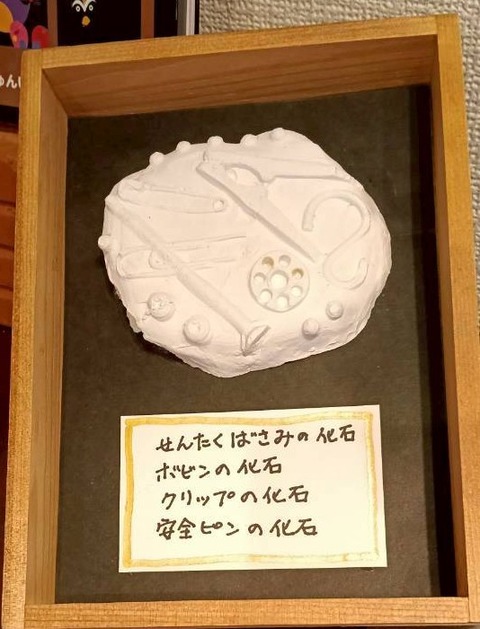 せんたくばさみの化石
ボビンの化石
クリップの化石
安全ピンの化石